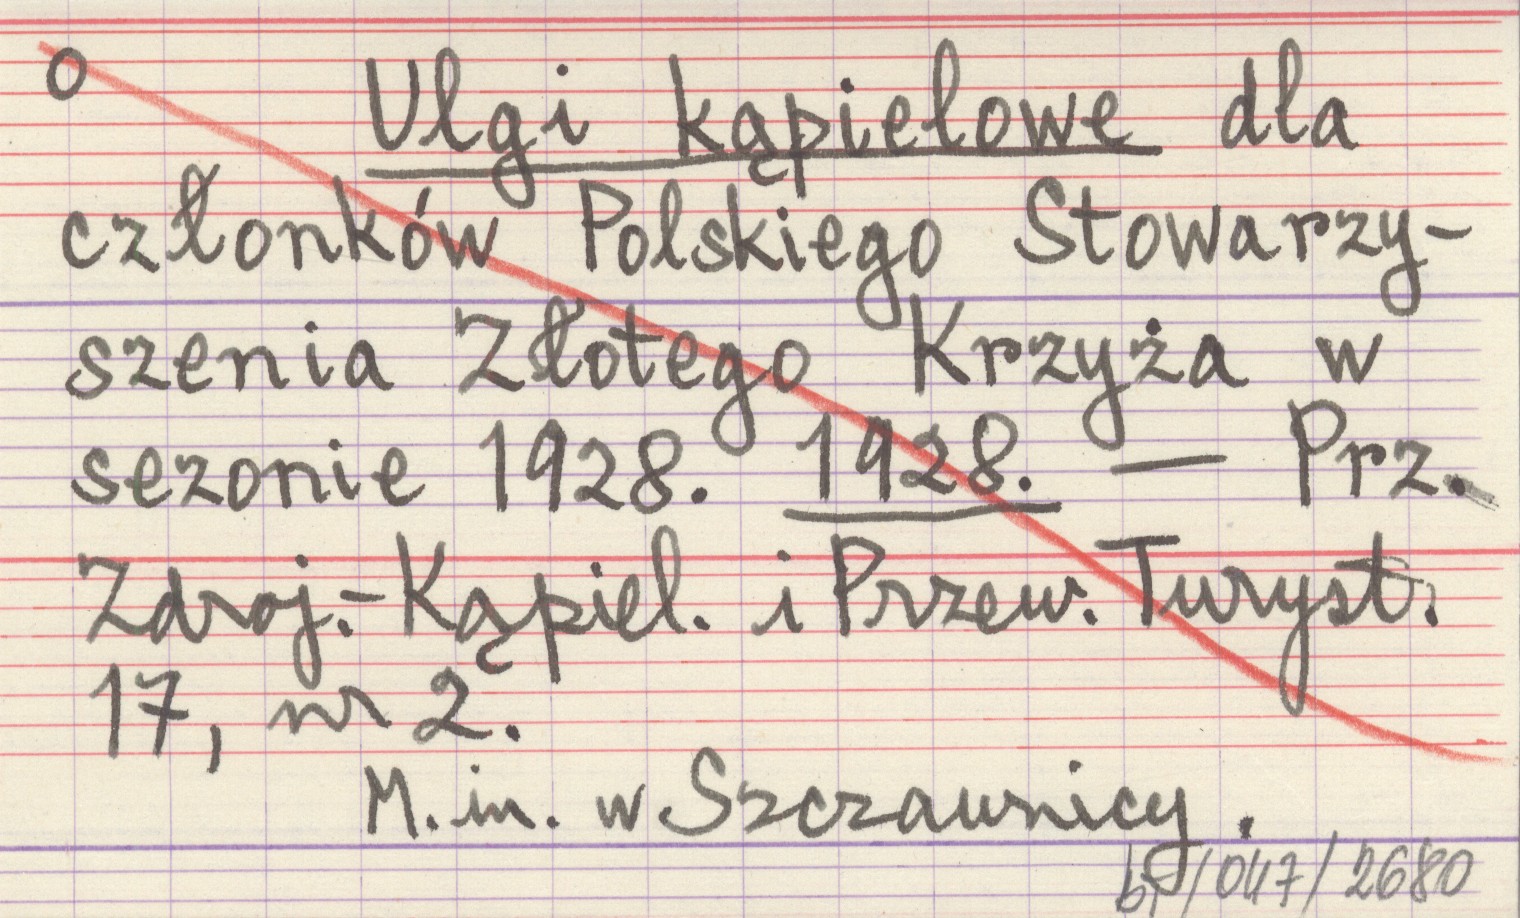 o Ulgi kąpielowe dla
członków Polskiego Stowarzy-
szenia Złotego Krzyża w
sezonie 1928. 1928. — Prz.
Zdroj.-Kąpiel. i Przew. Turyst.
17, nr 2.
M. in. w Szczawnicy.
/047/2680